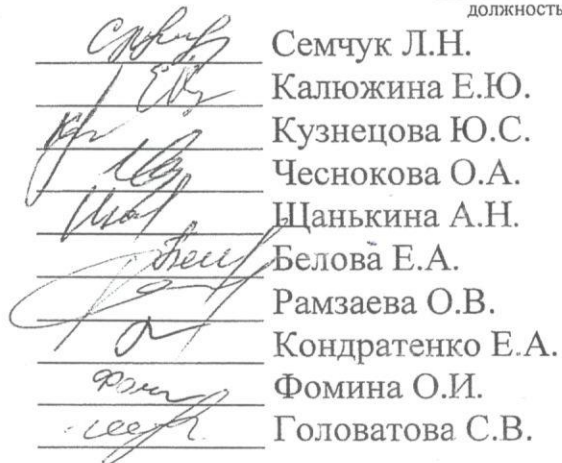 должность
Семчук Л.Н.
Калюжина Е.Ю.
Кузнецова Ю.С.
Чеснокова О.А.
Щанькина А.Н.
Белова Е.А.
Рамзаева О.В.
Кондратенко Е.А.
Фомина О.И.
Головатова С.В.